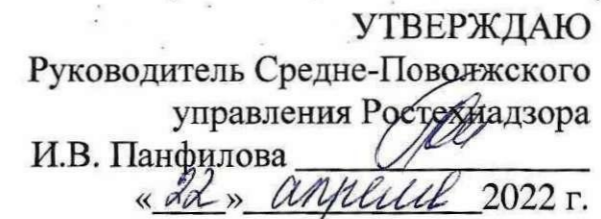 УТВЕРЖДАЮ
Руководитель Средне-Поволжского
управления Ростехнадзора
И.В. Панфилова
«22» апреля 2022 г.